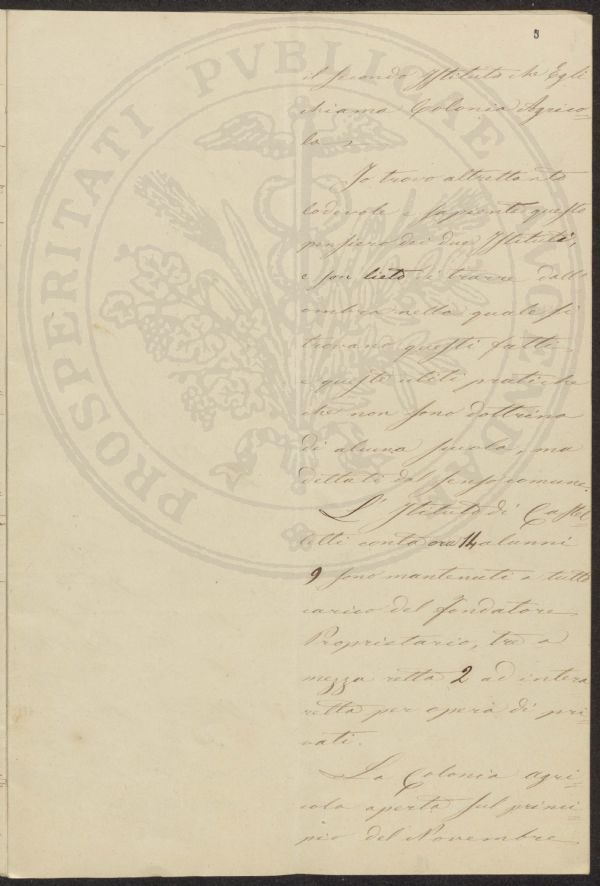 3
PROSPERITATI PVBLICAE AVGENDAE
il secondo Istituto che Egli
chiama Colonia Agrico=
la.
Io trovo altrettanto
lodevole e sapiente questo
pensiero dei due Istituti,
e son lieto di trarre dalla
ombra nella quale si
trovano questi fatti,
e queste utili pratiche
che non sono dottrina
di alcuna scuola, ma
dettato del senso comune.
L'Istituto di Castel=
letti conta ora 14 alunni
9 sono mantenuti a tutto
carico del fondatore
Proprietario, tre a
mezza retta 2 ad intera
retta per opera di pri=
vati.
La Colonia agri=
cola aperta sul princi=
pio del Novembre